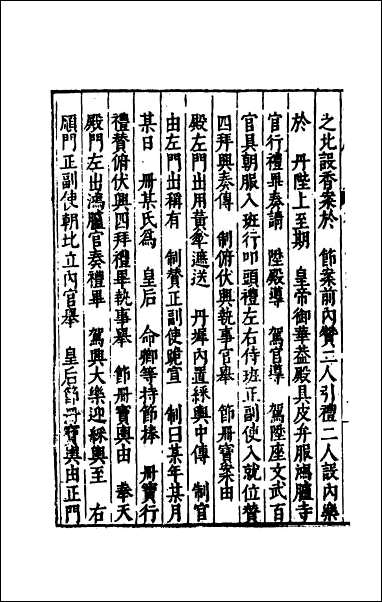 之北設香案於　節案前內贊二人引禮二人設內樂
於　丹陛上至期　皇帝御華蓋殿具皮弁服鴻臚寺
官行禮畢奏請　陞殿導　駕官導　駕陞座文武百
官具朝服入班行叩頭禮左右侍班正副使入就位贊
四拜興奏傳　制俯伏興執事官舉　節冊寶案由
殿左門出用黃傘遮送　丹墀內置綵輿中傳　制官
由左門出稱有　制贊正副使跪宣　制曰某年某月
某日　冊某氏為　皇后　命卿等持節捧　冊寶行
禮贊俯伏興四拜禮畢執事舉　節冊寶輿由　奉天
殿門左出鴻臚官奏禮畢　駕興大樂迎綵輿至　右
順門正副使朝北立內官舉　皇后節冊寶輿由正門